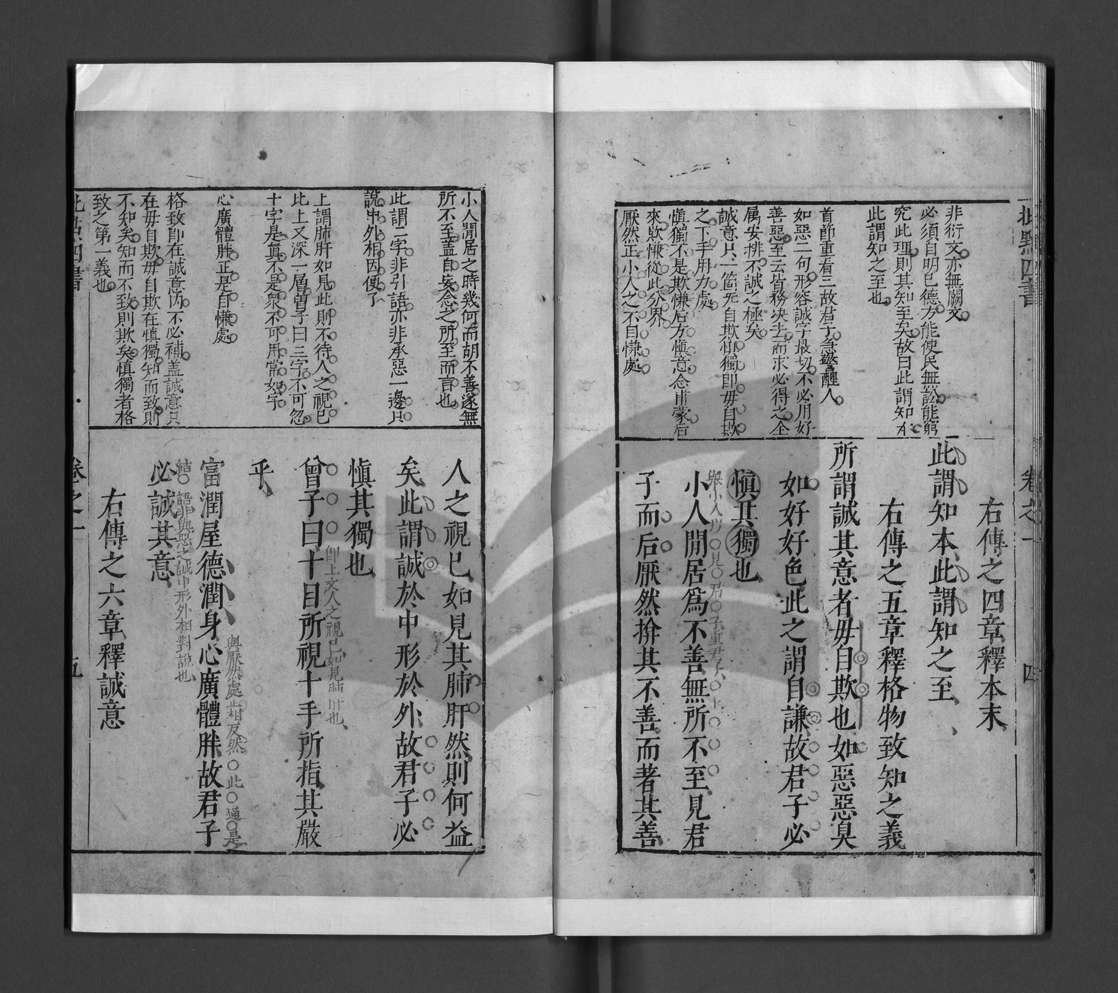 批點四書
卷之一
四
非衍文亦無闕文
必須自明已德方能使民無訟能窮
究此理則其知至矣故曰此謂知本
此謂知之至也
首節重看三故君子等喚醒人
如惡二句形容誠字最切不必用好
善惡惡云皆務決去而求必得之全
属安排不誠之極矣
誠意只一箇无自欺慎獨即毋自欺
之下手用力處
慎獨不是欺慊后方慬意念甫蒙后
來欺慊從此分界
厭然正小人之不自慊處
右傳之四章釋本末
此謂知本此謂知之至
右傳之五章釋格物致知之義
所謂誠其意者毋自欺也如惡惡臭
如好好色此之謂自謙故君子必
慎其獨也
小人閒居為不善無所不至見君
子而后厭然揜其不善而著其善
小人閒居之時幾何而胡不善遂無
所不至蓋自妄念之所至而言也
此謂二字非引語亦非承惡一邊只
說中外相因便了
上謂肺肝如見此則不待人之視已
此上又深一層曾子曰三字不可忽
十字是真不是衆不可用常如字
心廣體胖正是自慊處
格致即在誠意內不必補盖誠意只
在毋自欺毋自欺在慎獨知而致則
不知矣知而不致則欺矣慎獨者格
致之第一義也
人之視已如見其肺肝然則何益
矣此謂誠於中形於外故君子必
慎其獨也
即上文人之視已如見肺肝也
曾子曰十目所視十手所指其嚴
乎
與厭然處正相反然此適是
富潤屋德潤身心廣體胖故君子
結語與惡之誠中形外相對說也
必誠其意
右傳之六章釋誠意
批點四書
卷之一
五